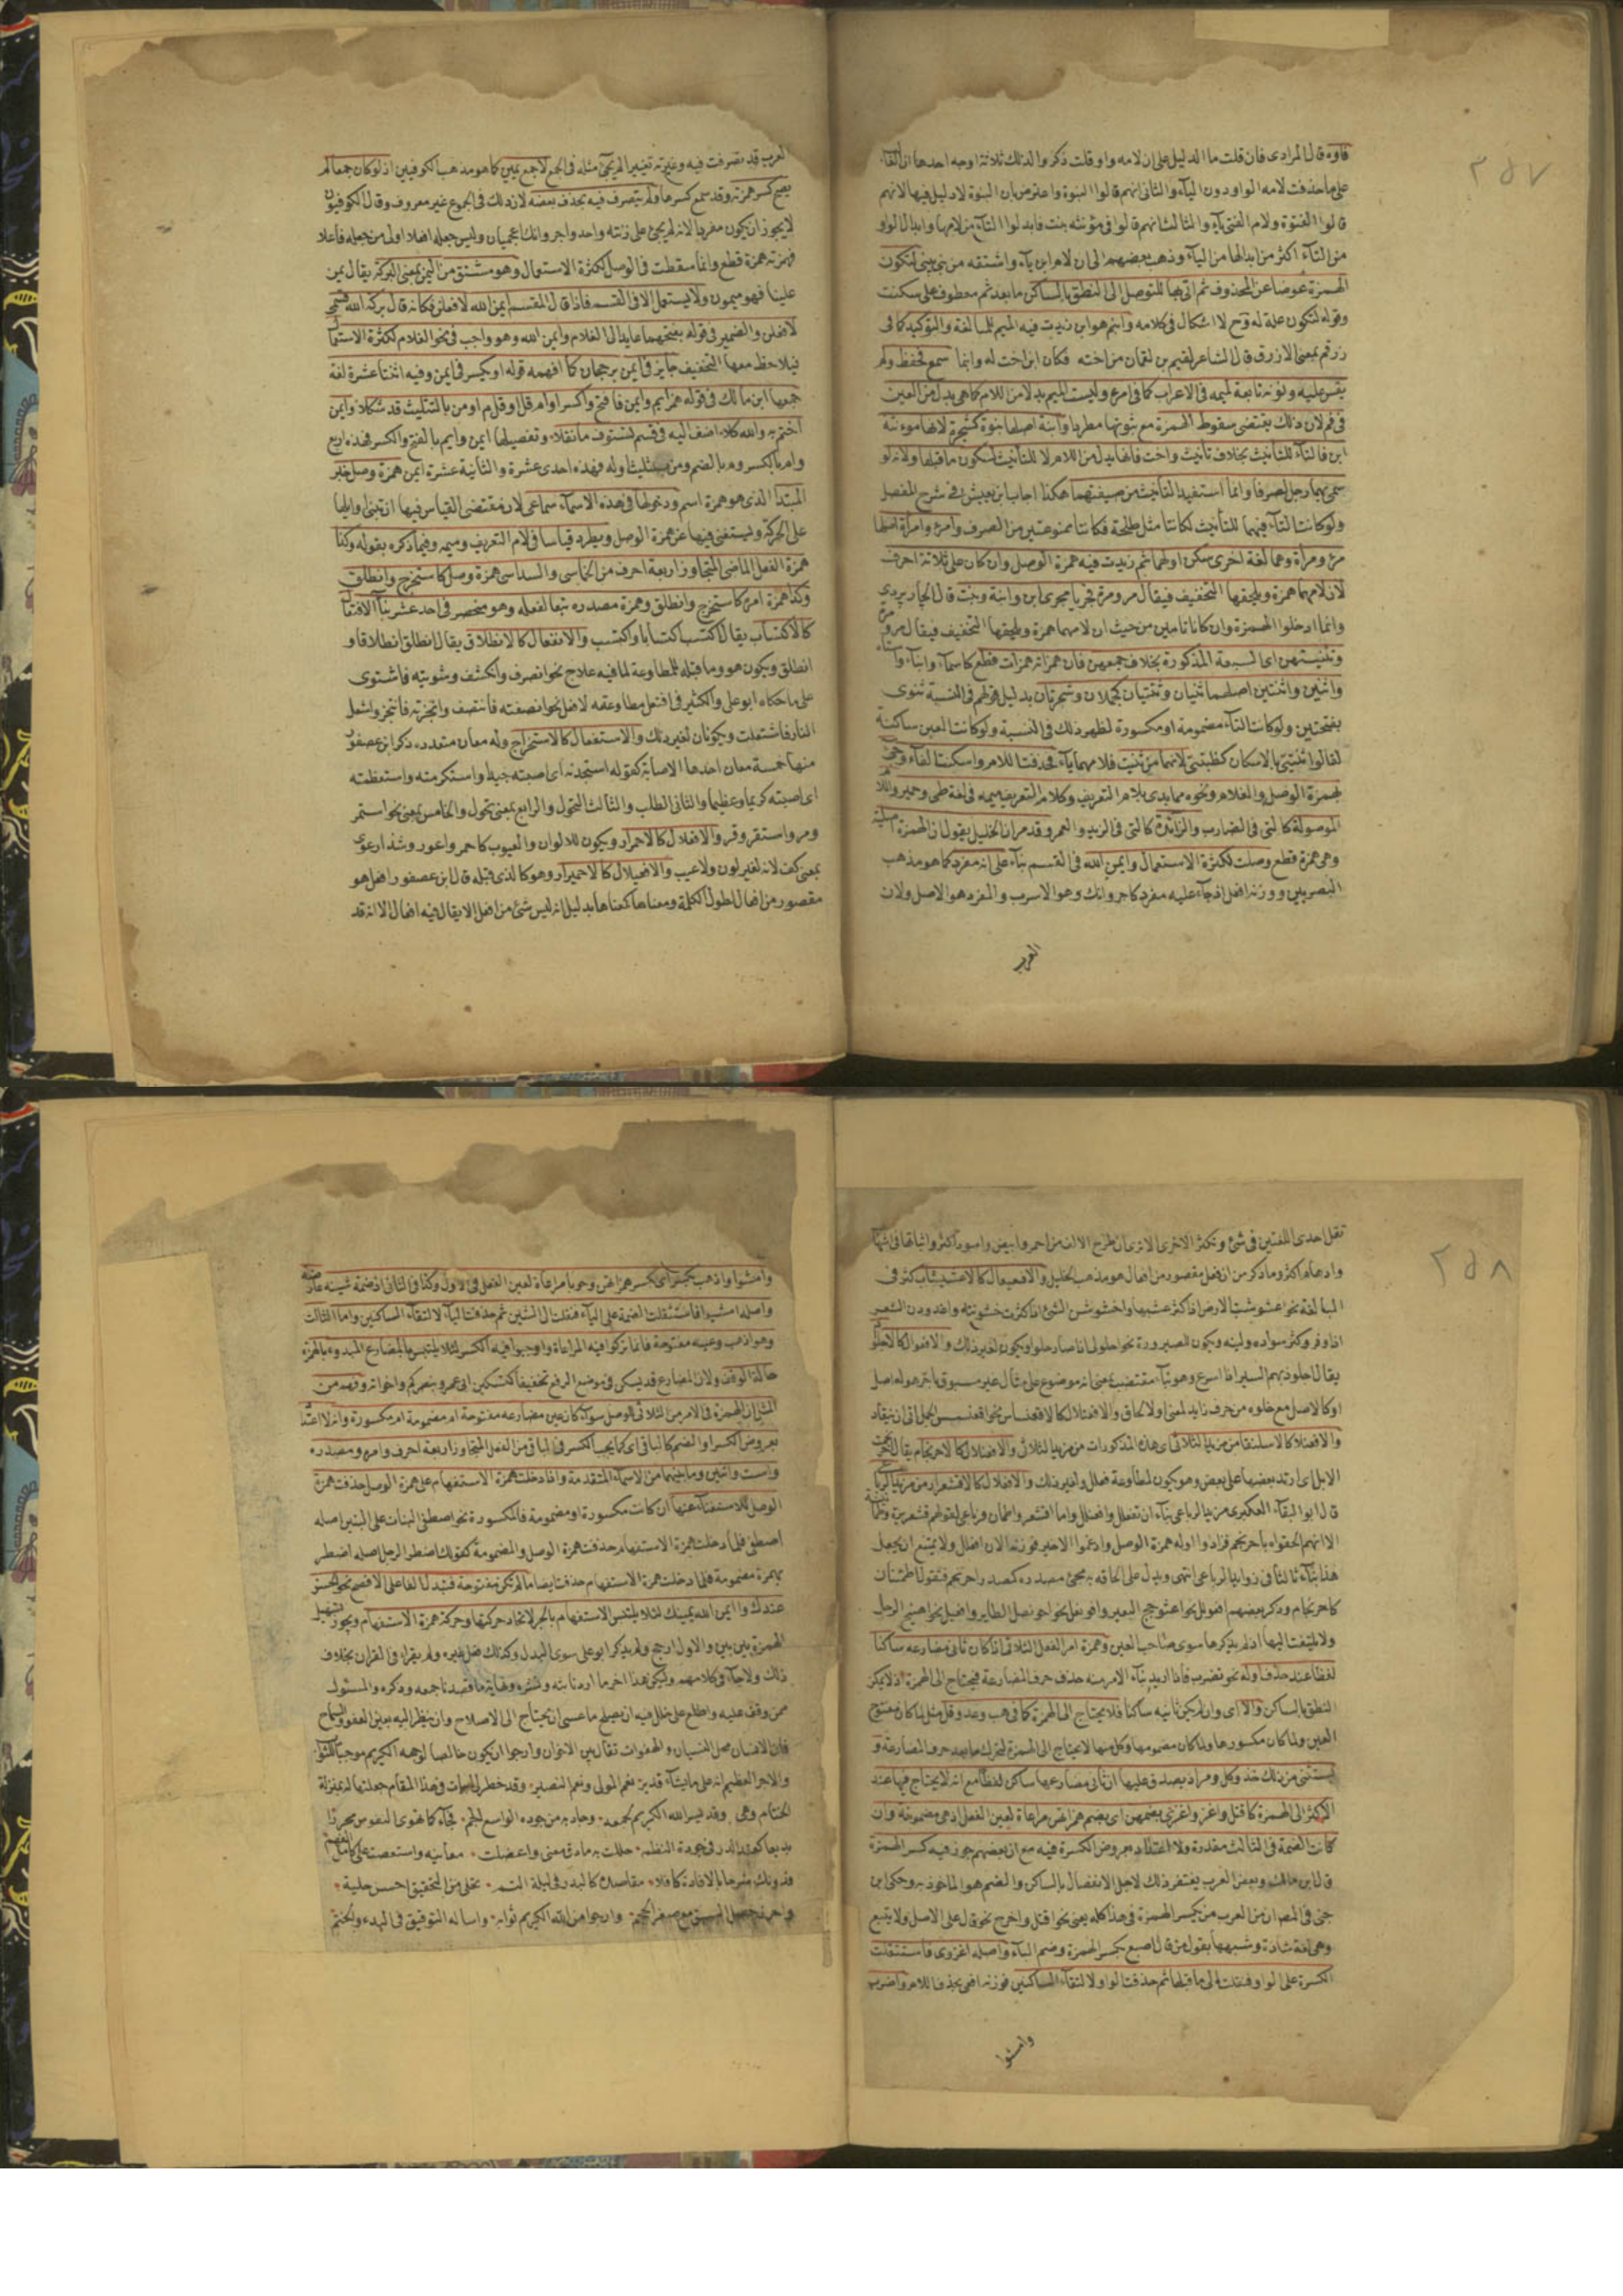 ٢٥٧
فاوه قال المرادى فان قلت ما الدليل على ان لامه واو قلت ذكروا لذلك ثلاثة اوجه احدها ان الغالب
على ما حذفت لامه الواو دون اليآء والثانى انهم قالوا البنوة واعترض بان البنوة لا دليل فيها لانهم
قالوا الفتوة ولام الفتى يآء والثالث انهم قالوا فى مؤنثه بنت فابدلوا التآء من لامها وابدال الواو
من التآء اكثر من ابدالها من اليآء وذهب بعضهم الى ان لام ابن يآء واشتقه من بنى يبنى لتكون
الهمزة عوضا عن المحذوف ثم اتى بها للتوصل الى النطق بالساكن ما بعد ثم معطوف على سكنت
وقوله لتكون علة له وح لا اشكال فى كلامه وابنم هو ابن زيدت فيه الميم للمبالغة والتوكيد كما فى
زرقم بمعنى الازرق قال الشاعر لقيم بن لقمان من اخته فكان ابن اخت له وابنما سمع تحفظ ولم
يقس عليه ونونه تابعة لميمه فى الاعراب كما فى امرء وليست الميم بدلا من اللام كما هى بدل من العين
فى فم لان ذلك يقتضى سقوط الهمزة مع ثبوتها مطردا وابنة اصلها بنوة كشجرة لانها مونثة
ابن فالتآء للتأنيث بخلاف تأنيث واخت فانها بدل من اللام لا للتأنيث لسكون ما قبلها ولانه لو
سمى بهما رجل لصرفا وانما استفيد التأنيث من صيغتهما هكذا اجاب ابن يعيش فى شرح المفصل
ولو كانت التآء فيهما للتأنيث لكانتا مثل طلحة فكانتا ممنوعتين من الصرف وامرء وامرأة اصلها
مرء ومرأة وهما لغة اخرى سكن اولهما ثم زيدت فيه همزة الوصل وان كان على ثلاثة احرف
لان لامهما همزة ويلحقها التخفيف فيقال مر ومرة تجريا مجرى ابن وابنة وبنت قال الجاربردى
وانما ادخلوا الهمزة وان كانا تامين من حيث ان لامهما همزة ويلحقها التخفيف فيقال مر ومرة
وتثنيتهن اى السبعة المذكورة بخلاف جمعهن فان همزاته همزات قطع كاسمآء وابنآء
واثنين واثنتين اصلهما ثنيان وثنتيان كجملان وشجرتان بدليل قولهم فى النسبة ثنوى
بفتحتين ولو كانت التآء مضمومة او مكسورة لظهر ذلك فى النسبة ولو كانت العين ساكنة
لقالوا ثنيتى بالاسكان كظبيتى لانهما من ثنيت فلامهما يآء فحذفت اللام واسكنت الفآء وجئ
بهمزة الوصل والغلام ونحوه مما بدى بلام التعريف وكلام التعريف ميمه فى لغة طى وحمير واللام
الموصولة كالتى فى الضارب والزائدة كالتى فى الزيد والعمرو قد مر ان الخليل يقول ان الهمزة اصلية
وهى همزة قطع وصلت لكثرة الاستعمال وايمن الله فى القسم بنآء على انه مفرد كما هو مذهب
البصريين ووزنه افعل اذ جآء عليه مفرد كاجر وانك وهو الاسرب والمفرد هو الاصل ولان
العرب
العرب قد تصرفت فيه وغيرته تغييرا لم يجئ مثله فى الجمع لا جمع يمين كما هو مذهب الكوفيين اذ لو كان جمعا لم
يصح كسر همزته وقد سمع كسرها ولم يتصرف فيه بحذف بعضه لان ذلك فى الجموع غير معروف وقال الكوفيون
لا يجوز ان يكون مفردا لانه لم يجئ على زنته واحد واجر وانك اعجميان وليس جعله افعلا اولى من جعله فاعلا
فهمزته همزة قطع وانما سقطت فى الوصل لكثرة الاستعمال وهو مشتق من اليمن بمعنى البركة يقال يمن
علينا فهو ميمون ولا يستعمل الا فى القسم فاذا قال المقسم ايمن الله لافعلن فكانه قال بركة الله قسمى
لافعلن والضمير فى قوله بفتحهما عايد الى الغلام وايمن الله وهو واجب فى نحو الغلام لكثرة الاستعمال
فيلاحظ معها التخفيف جايز فى ايمن برجحان كما افهمه قوله او يكسر فى ايمن وفيه اثنتا عشرة لغة
جمعها ابن مالك فى قوله همز ايم وايمن فافتح واكسر او ام قل او قل م او من بالتثليث قد شكلا وايمن
اختم به والله كلا اضف اليه فى قسم تستوف ما نقلا وتفصيلها ايمن وايم بالفتح والكسر فهذه اربع
وام بالكسر وم بالضم ومن بتثليث اوله فهذه احدى عشرة والثانية عشرة ايمن همزة وصل خبر
المبتدا الذى هو همزة اسم ودخولها فى هذه الاسمآء سماعى لان مقتضى القياس فيها ان تبنى اوايلها
على الحركة ويستغنى فيها عن همزة الوصل ويطرد قياسا فى لام التعريف وميمه وفيما ذكره بقوله وكذا
همزة الفعل الماضى المتجاوز اربعة احرف من الخماسى والسداسى همزة وصل كاستخرج وانطلق
وكذا همزة امره كاستخرج وانطلق وهمزة مصدره تبعا لفعله وهو منحصر فى احد عشر بنآء الافتعال
كالاكتساب يقال اكتسب اكتسابا واكتسب والانفعال كالانطلاق يقال انطلق انطلاقا و
انطلق ويكون هو وما قبله للمطاوعة لما فيه علاج نحو انصرف وانكشف وشويته فاشتوى
على ما حكاه ابو على والكثير فى افتعل مطاوعته لافعل نحو انصفته فانتصف وانجزته فانتجز واشعل
النار فاشتعلت ويكونان لغير ذلك والاستفعال كالاستخراج وله معان متعدده ذكر ابن عصفور
منها خمسة معان احدها الاصابة كقوله استجدته اى اصبته جيدا واستكرمته واستعظمته
اى اصبته كريما وعظيما والثانى الطلب والثالث التحول والرابع بمعنى تحول والخامس بمعنى نحو استمر
ومر واستقر وقر والافعلال كالاحمرار ويكون للالوان والعيوب كاحمر واعور وشذ ارعوى
بمعنى كف لانه لغير لون ولا عيب والافعيلال كالاحميرار وهو كالذى قبله قال ابن عصفور افعل هو
مقصور من افعال لطول الكلمة ومعناها كمعناها بدليل انه ليس شئ من افعل الا يقال فيه افعال الا انه قد
٢٥٨
تقل احدى اللغتين فى شئ وتكثر الاخرى الا ترى ان طرح الالف من احمر وابيض واسود اكثر واثباتها فى اشهاب
وادهام اكثر وما ذكر من ان افعل مقصور من افعال هو مذهب الخليل والافعيعال كالاعشيشاب كثر فى
المبالغة نحو اعشوشب الارض اذا كثر عشبها واخشوشن الشئ اذا كثرت خشونته واغدودن الشعر
اذا وفر وكثر سواده ولينه ويكون للصيرورة نحو احلولى اذا صار حلوا ويكون لغير ذلك والافعوال كالاجلواذ
يقال اجلوذ بهم السير اذا اسرع وهو بنآء مقتضب بمعنى انه موضوع على مثال غير مسبوق باخر هو له اصل
او كالاصل مع خلوه من حرف زايد لمعنى او لالحاق والافعنلال كالاقعنساس نحو اقعنسس الجمل اذا ابى ان ينقاد
والافعنلا كالاسلنقا من مزيد الثلاثى اى هذه المذكورات من مزيد الثلاثى والافعنلال كالاحرنجام يقال احرنجمت
الابل اى ارتد بعضها على بعض وهو يكون لمطاوعة فعلل ولغير ذلك والافعلال كالاقشعرار من مزيد الرباعى
قال ابو البقآء العكبرى مزيد الرباعى بنآء ان تفعلل وافعنلل واما اقشعر واطمان فرباعى لقولهم قشعريرة وطمأنينة
الا انهم الحقوه باحرنجم فزادوا اوله همزة الوصل وادغموا الاخير فوزنه الان افعلل ولا يمتنع ان يجعل
هذا بنآء ثالثا فى زوايد الرباعى انتهى ويدل على الحاقه به مجئ مصدره كمصدر احرنجم فتقول اطمئنان
كاحرنجام وذكر بعضهم افعولل نحو اعثوجج البعير وافونعل نحو احونصل الطاير وافعيل نحو اهبيخ الرجل
ولا يلتفت اليها اذ لم يذكرها سوى صاحب العين وهمزة امر الفعل الثلاثى اذا كان ثانى مضارعه ساكنا
لفظا عند حذف اوله نحو تضرب فاذا اريد بنآء الامر منه حذف حرف المضارعة فيحتاج الى الهمزة اذ لا يمكن
النطق بالساكن والا اى وان لم يكن ثانيه ساكنا فلا يحتاج الى الهمزة كما فى هب وعد وقل مثل لما كان مفتوح
العين ولما كان مكسورها ولما كان مضمومها وكل منها لا يحتاج الى الهمزة لتحرك ما بعد حرف المضارعة و
يستثنى من ذلك خذ وكل ومر اذ يصدق عليها ان ثانى مضارعها ساكن لفظا مع انه لا يحتاج فيها عند
الاكثر الى الهمزة كاقتل واغز واغزى بضمهن اى بضم همزاتهن مراعاة لعين الفعل اذ هى مضمومة وان
كانت الضمة فى الثالث مقدرة ولا اعتداد بعروض الكسرة فيه مع ان بعضهم جوز فيه كسر الهمزة
قال ابن مالك وبعض العرب يغتفر ذلك لاجل الانفصال بالساكن والضم هو الماخوذ به وحكى ابن
جنى فى المصنف ان من العرب من يكسر الهمزة فى هذا كله يعنى نحو اقتل واخرج نحو قال على الاصل ولا يتبع
وهى لغة شاذة وشبهها بقول من قال اصبع بكسر الهمزة وضم البآء واصله اغزوى فاستثقلت
الكسرة على الواو فنقلت الى ما قبلها ثم حذفت الواو لالتقآء الساكنين فوزنه افعى بحذف اللام واضرب
وامشوا
وامشوا واذهب بكسر اى بكسر همزاتهن وجوبا مراعاة لعين الفعل فى الاول وكذا فى الثانى اذ ضمة شينه عارضة
واصله امشيوا فاستثقلت الضمة على اليآء فنقلت الى الشين ثم حذفت اليآء لالتقآء الساكنين واما الثالث
وهو اذهب وعينه مفتوحة فانما تركوا فيه المراعاة واوجبوا فيه الكسر لئلا يلتبس بالمضارع المبدوء بالهمزة
حالة الوقف ولان المضارع قد يسكن فى موضع الرفع تخفيفا كتسكين ابى عمرو ينصركم واخواته وفهم من
المثل ان الهمزة فى الامر من الثلاثى للوصل سوآء كان عين مضارعه مفتوحة ام مضمومة ام مكسورة وانه لا اعتداد
بعروض الكسر او الضم كالباقى اى كما يجب الكسر فى الباقى من الفعل المتجاوز اربعة احرف وامره ومصدره
واست واثنين وما بينهما من الاسمآء المتقدمة واذا دخلت همزة الاستفهام على همزة الوصل حذفت همزة
الوصل للاستغنآء عنها ان كانت مكسورة او مضمومة فالمكسورة نحو اصطفى البنات على البنين اصله
اصطفى فلما دخلت همزة الاستفهام حذفت همزة الوصل والمضمومة كقولك اضطر الرجل اصله اضطر
بهمزة مضمومة فلما دخلت همزة الاستفهام حذفت ايضا ما لم تكن مفتوحة فتبدل الفا على الافصح نحو آلحسن
عندك وآيمن الله يمينك لئلا يلتبس الاستفهام بالخبر لاتحاد حركتها وحركة همزة الاستفهام ويجوز تسهيل
الهمزة بين بين والاول ارجح ولم يذكر ابو على سوى البدل وكذلك فعل غيره ولم يقرا فى القران بخلاف
ذلك ولا جآء فى كلامهم وليكن هذا اخر ما اردنا بثه ونشره ونهاية ما قصدنا جمعه وذكره والمسئول
ممن وقف عليه واطلع على خلل فيه ان يصلح ما عسى ان يحتاج الى الاصلاح وان ينظر اليه بعين العفو والسماح
فان الانسان محل النسيان والهفوات تقال بين الاخوان وارجوا ان يكون خالصا لوجهه الكريم موجبا للثواب
والاجر العظيم انه على ما يشآء قدير نعم المولى ونعم النصير وقد خطر لى ابيات فى هذا المقام جعلتها له بمنزلة
الختام وهى وقد يسر الله الكريم لجمعه وجاد به من جوده الواسع الجم فجآء كما تهوى النفوس محررا
بديعا كعقد الدر فى جودة النظم حللت به ما دق معنى واعضلت معانيه واستعصت على كامل الفهم
فدونك شرحا بالافادة كافلا مقاصده كالبدر فى ليلة التم تحلى من التحقيق احسن حلية
واحرز خصل السبق مع صغر الحجم وارجوا من الله الكريم ثوابه واساله التوفيق فى البدء والختم